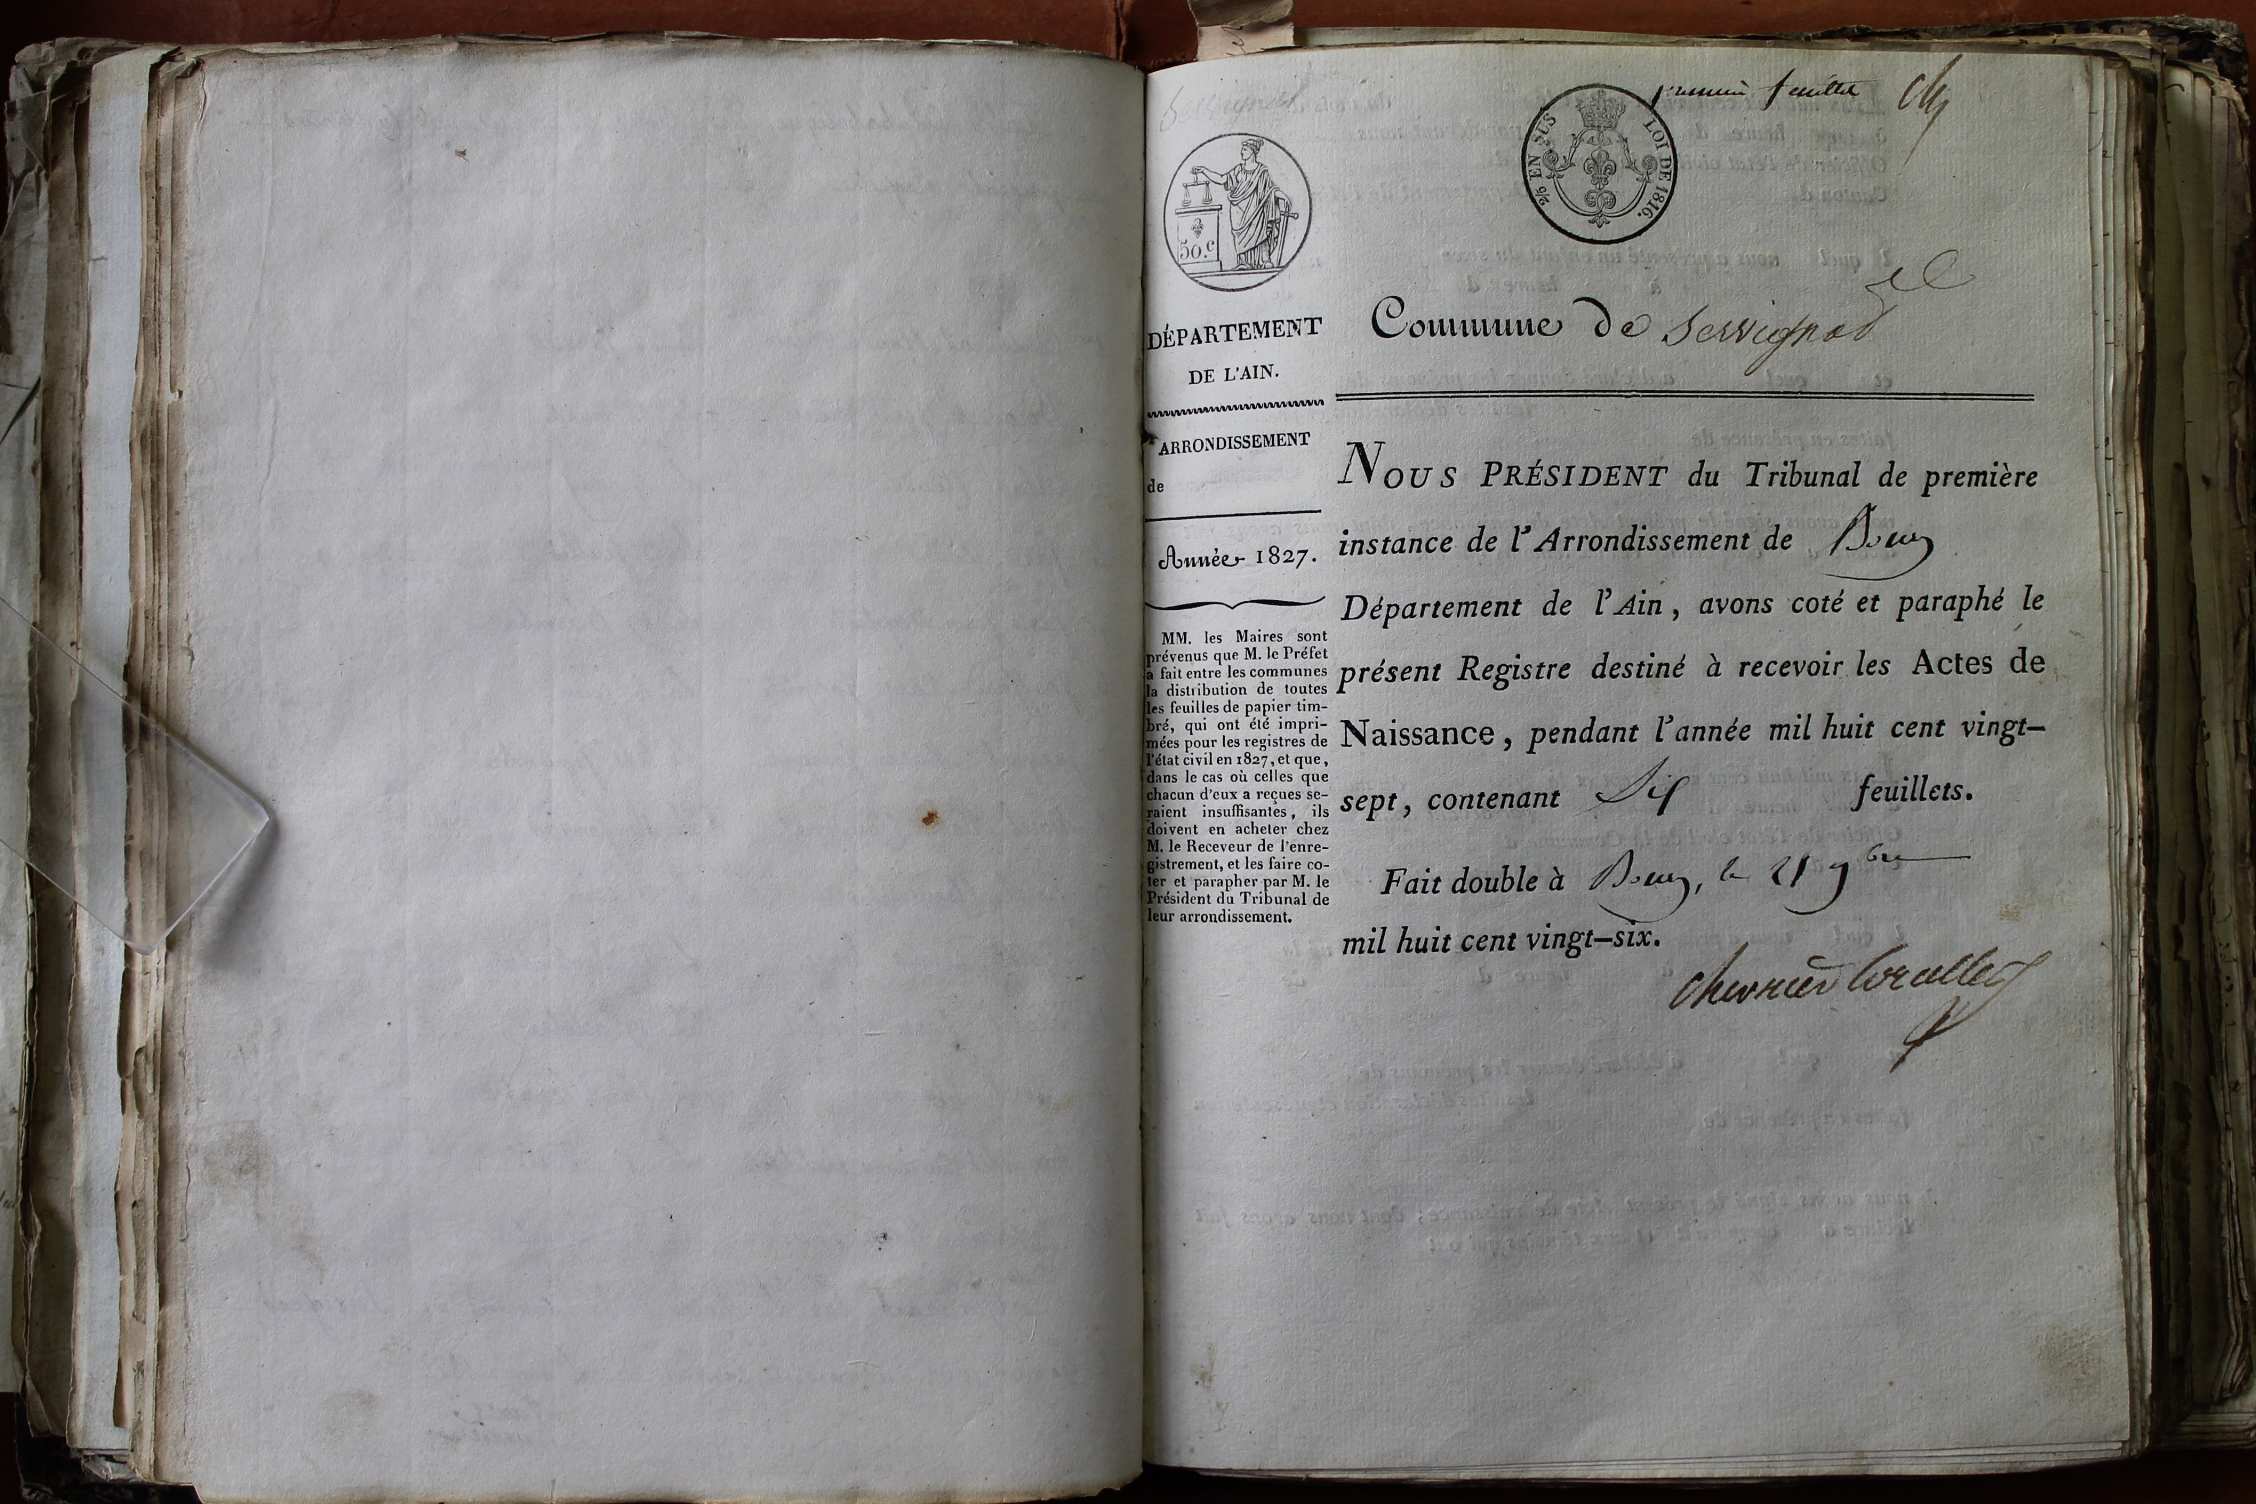 premier feuillet
2/5 EN SUS LOI DE 1816.
50.c
DÉPARTEMENT
DE L'AIN.
ARRONDISSEMENT
de
Année 1827.
MM. les Maires sont
prévenus que M. le Préfet
a fait entre les communes
la distribution de toutes
les feuilles de papier tim-
bré, qui ont été impri-
mées pour les registres de
l'état civil en 1827, et que,
dans le cas où celles que
chacun d'eux a reçues se-
raient insuffisantes, ils
doivent en acheter chez
M. le Receveur de l'enre-
gistrement, et les faire co-
ter et parapher par M. le
Président du Tribunal de
leur arrondissement.
Commune de Servignat
NOUS PRÉSIDENT du Tribunal de première
instance de l'Arrondissement de Bourg
Département de l'Ain, avons coté et paraphé le
présent Registre destiné à recevoir les Actes de
Naissance, pendant l'année mil huit cent vingt-
sept, contenant Six feuillets.
Fait double à Bourg, le 21 9bre
mil huit cent vingt-six.